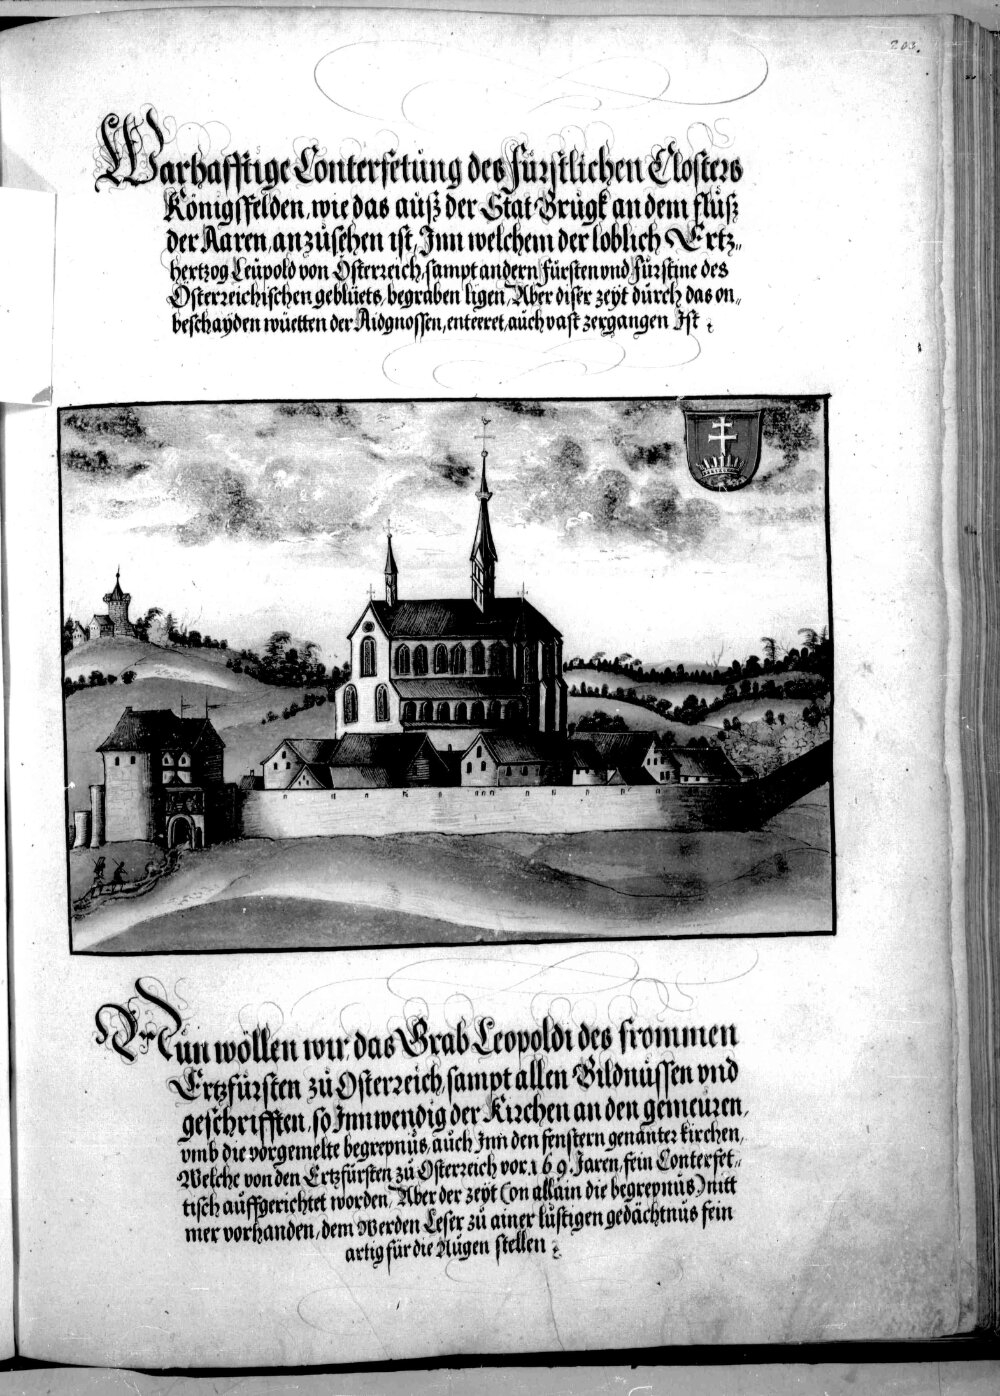 203.
Warhafftige Conterfetung des Fürstlichen Closters
Königsfelden, wie das auß der Stat Brugk an dem fluß
der Aaren, anzusehen ist, Jnn welchem der loblich Ertz„
hertzog Leupold von Österreich, sampt andern fürsten vnd Fürstine des
Österreichischen geblüets, begraben ligen, Aber diser zeyt durch das on„
beschayden wüetten der Aidgnossen, enteeret, auch vast zergangen Jst
Nun wöllen wir das Grab Leopoldi des frommen
Ertzfürsten zu Osterreich, sampt allen Bildnussen vnd
geschrifften, so Jnnwendig der Kirchen an den gemeuren,
vmb die vorgemelte begrepnus, auch Jnn den fenstern genanter kirchen,
Welche von den Ertzfürsten zu Osterreich vor .169. Jaren, fein Conterfet„
tisch auffgerichtet worden, Aber der zeyt (on allain die begrepnus) nitt
mer vorhanden, dem Werden Leser zu ainer lustigen gedächtnus fein
artig für die Augen stellen